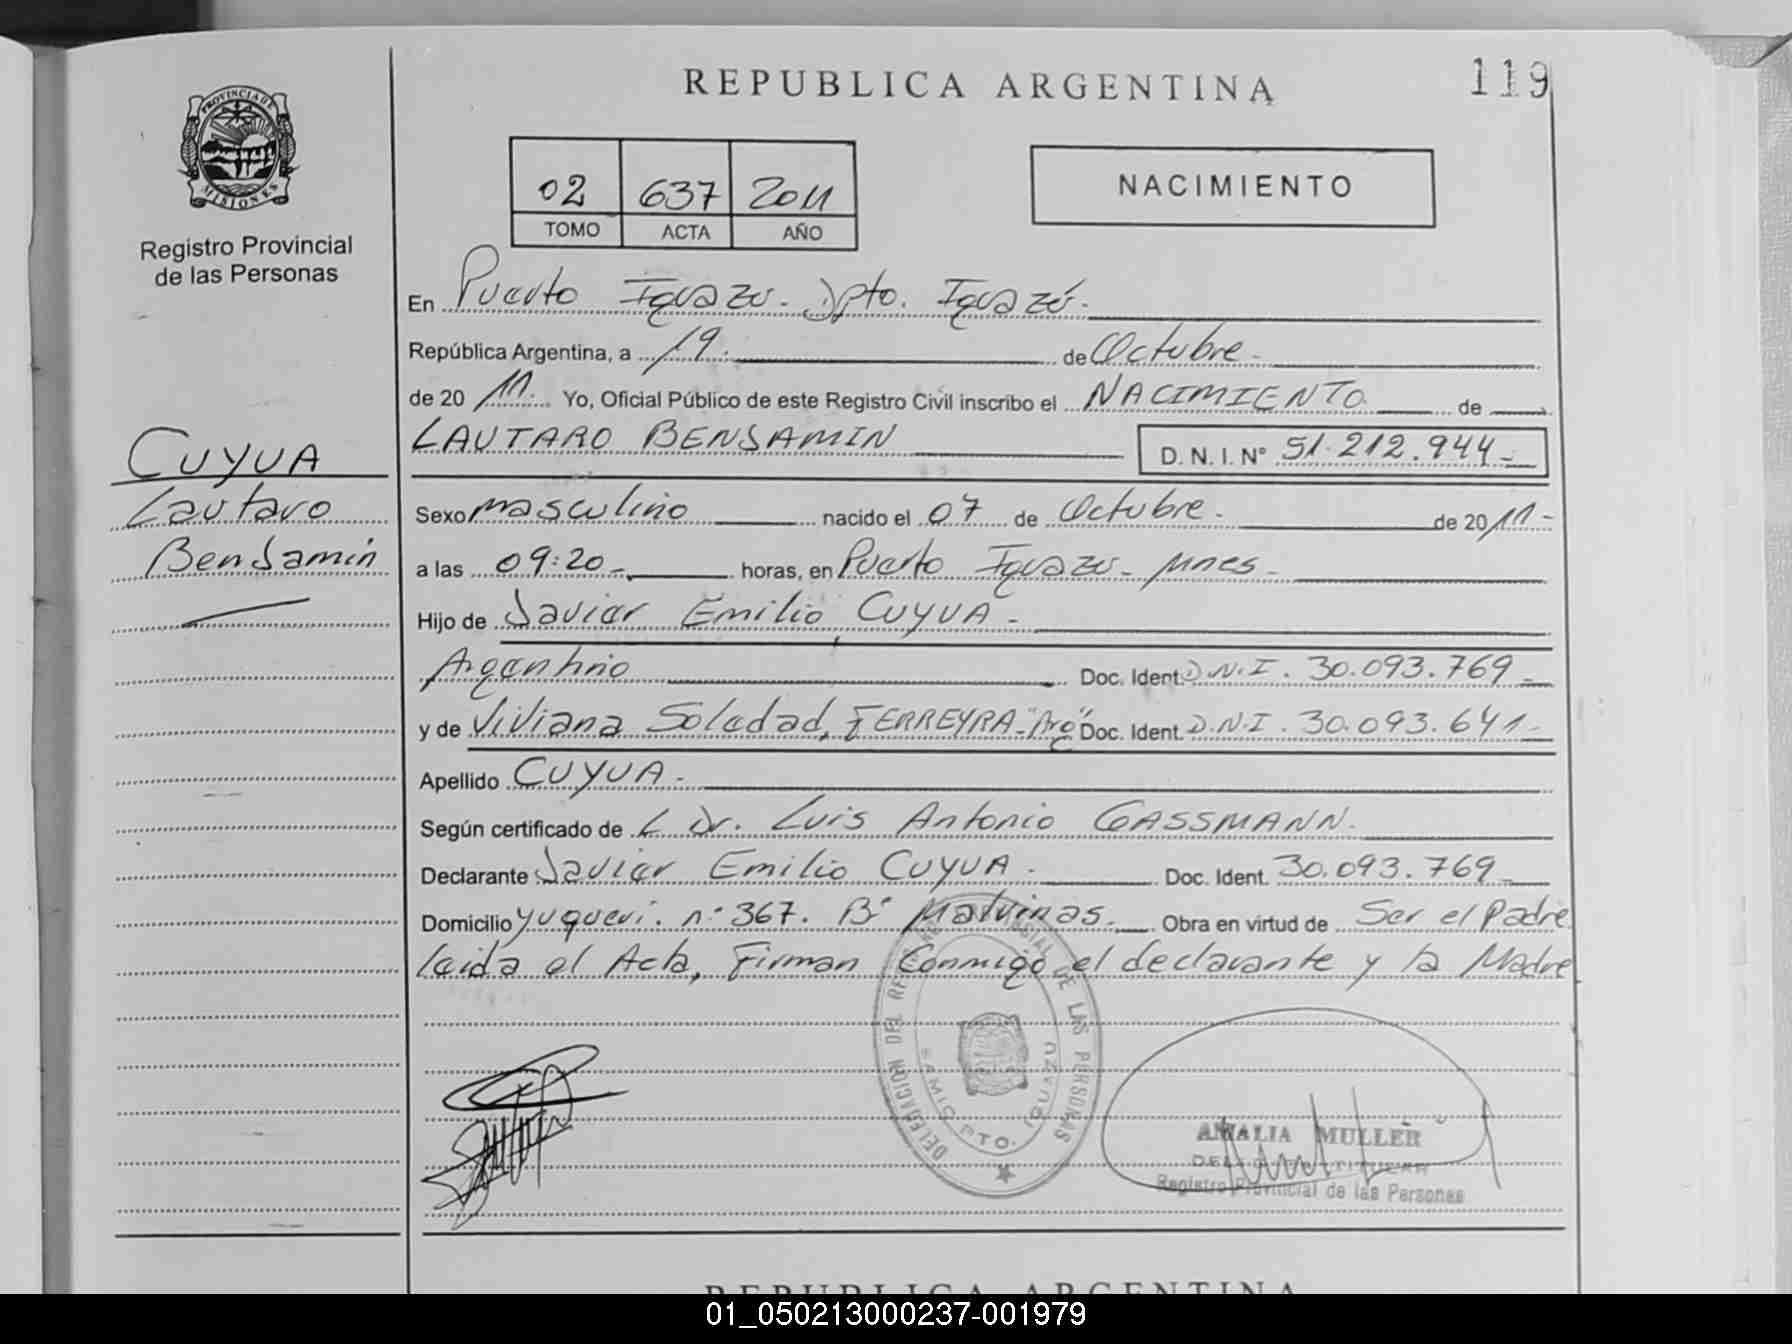 REPUBLICA ARGENTINA
119
PROVINCIA DE
MISIONES
Registro Provincial
de las Personas
02 637 2011
TOMO ACTA AÑO
NACIMIENTO
En Puerto Iguazú. Dpto. Iguazú.
República Argentina, a 19. de Octubre.
de 20 11. Yo, Oficial Público de este Registro Civil inscribo el NACIMIENTO de
LAUTARO BENJAMIN D.N.I. N° 51.212.944-
CUYUA
Lautaro
Benjamin
Sexo masculino nacido el 07 de Octubre. de 20 11-
a las 09:20- horas, en Puerto Iguazú- Mnes-
Hijo de Javier Emilio CUYUA-
Argentino Doc. Ident. D.N.I. 30.093.769-
y de Viviana Soledad, FERREYRA-"Arg" Doc. Ident. D.N.I. 30.093.641-
Apellido CUYUA-
Según certificado de L Dr. Luis Antonio GASSMANN.
Declarante Javier Emilio CUYUA. Doc. Ident. 30.093.769-
Domicilio Yuqueri. n° 367. B° Malvinas. Obra en virtud de Ser el Padre
leida el Acta, Firman Conmigo el declarante y la Madre
DELEGACION DEL REG DE LAS PERSONAS
PTO. IGUAZU
AMALIA MULLER
Registro Provincial de las Personas
REPUBLICA ARGENTINA
01_050213000237-001979